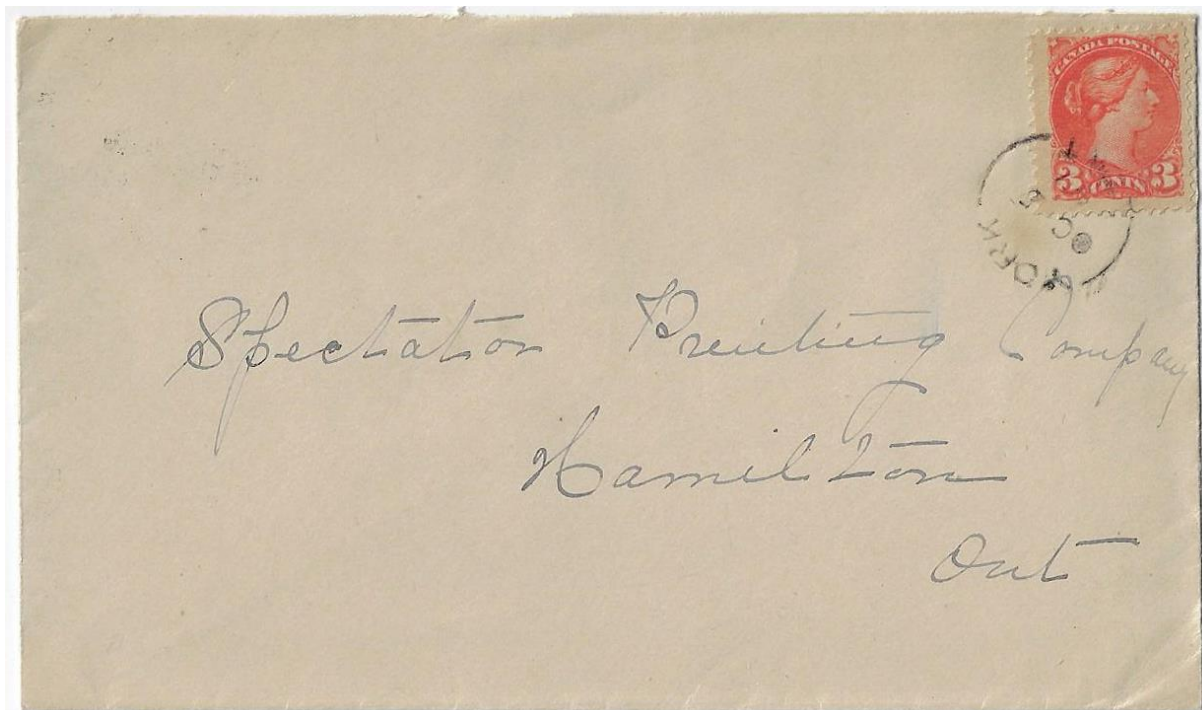 CANADA POSTAGE
3 CENTS 3
YORK
Spectator Printing Company
Hamilton
Ont